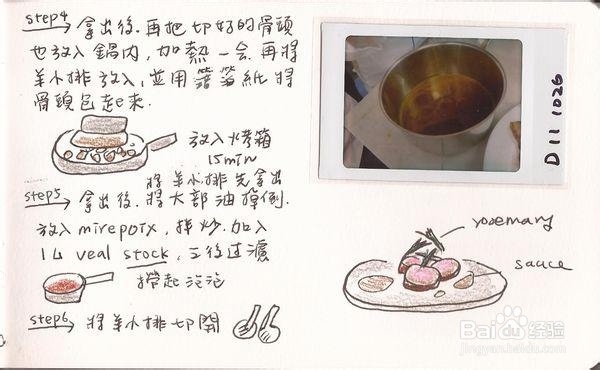 step4 拿出後.再把切好的骨頭
也放入鍋內,加熱一会.再將
羊小排放入,並用箔紙將
骨頭包起來.
放入烤箱
15min
將羊小排先拿出
step5 拿出後.將大部油掉倒.
放入mirepoix,拌炒.加入
1L veal stock,三後过濾
撈起泡泡
step6 將羊小排切開
D11 1026
rosemary
sauce
Baidu经验
jingyan.baidu.com